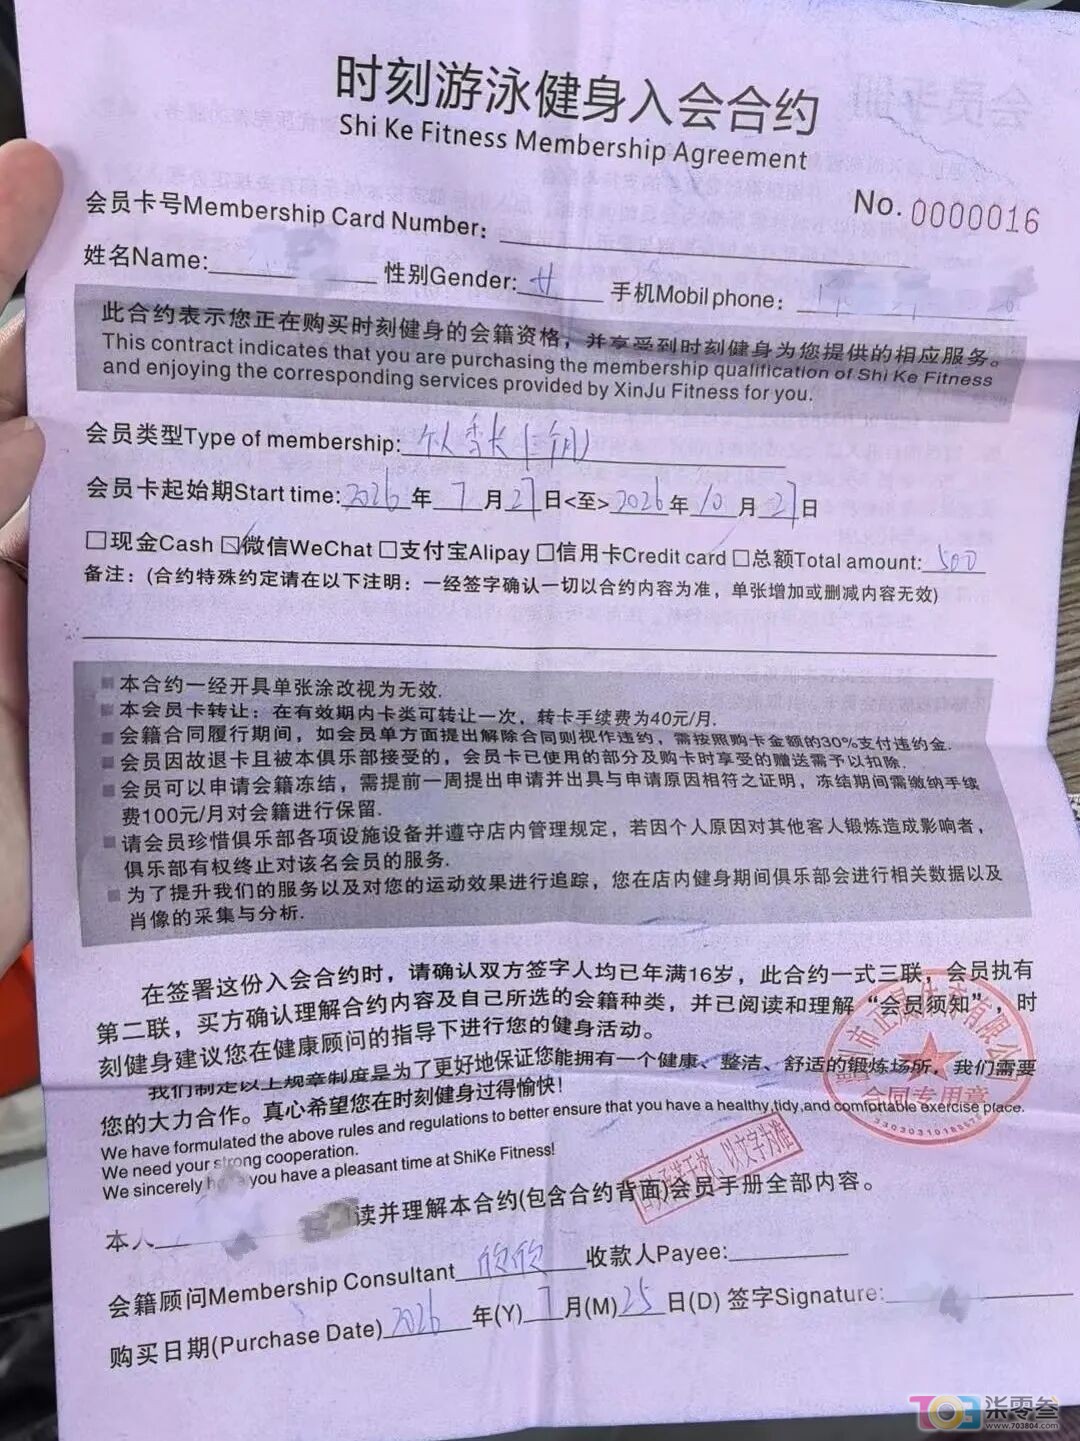 时刻游泳健身入会合约
Shi Ke Fitness Membership Agreement
No. 0000016
会员卡号Membership Card Number:
姓名Name: 性别Gender: 女 手机Mobil phone:
此合约表示您正在购买时刻健身的会籍资格，并享受到时刻健身为您提供的相应服务。
This contract indicates that you are purchasing the membership qualification of Shi Ke Fitness
and enjoying the corresponding services provided by XinJu Fitness for you.
会员类型Type of membership: 个人季卡(三个月)
会员卡起始期Start time: 2026年 7月27日<至>2026年10月27日
□现金Cash ☑微信WeChat □支付宝Alipay □信用卡Credit card □总额Total amount: 500
备注：(合约特殊约定请在以下注明：一经签字确认一切以合约内容为准，单张增加或删减内容无效)
■本合约一经开具单张涂改视为无效.
■本会员卡转让：在有效期内卡类可转让一次，转卡手续费为40元/月.
■会籍合同履行期间，如会员单方面提出解除合同则视作违约，需按照购卡金额的30%支付违约金.
■会员因故退卡且被本俱乐部接受的，会员卡已使用的部分及购卡时享受的赠送需予以扣除.
■会员可以申请会籍冻结，需提前一周提出申请并出具与申请原因相符之证明，冻结期间需缴纳手续
费100元/月对会籍进行保留.
■请会员珍惜俱乐部各项设施设备并遵守店内管理规定，若因个人原因对其他客人锻炼造成影响者，
俱乐部有权终止对该名会员的服务.
■为了提升我们的服务以及对您的运动效果进行追踪，您在店内健身期间俱乐部会进行相关数据以及
肖像的采集与分析.
在签署这份入会合约时，请确认双方签字人均已年满16岁，此合约一式三联，会员执有
第二联，买方确认理解合约内容及自己所选的会籍种类，并已阅读和理解“会员须知”，时
刻健身建议您在健康顾问的指导下进行您的健身活动。
我们制定以上规章制度是为了更好地保证您能拥有一个健康、整洁、舒适的锻炼场所，我们需要
您的大力合作。真心希望您在时刻健身过得愉快！
We have formulated the above rules and regulations to better ensure that you have a healthy,tidy,and comfortable exercise place.
We need your strong cooperation.
We sincerely you have a pleasant time at ShiKe Fitness!
合同专用章
口头承诺无效、以文字为准
本人 读并理解本合约(包含合约背面)会员手册全部内容。
会籍顾问Membership Consultant 欣欣 收款人Payee:
购买日期(Purchase Date) 2026 年(Y) 7 月(M) 25 日(D) 签字Signature:
703 柒零叁
www.703804.com